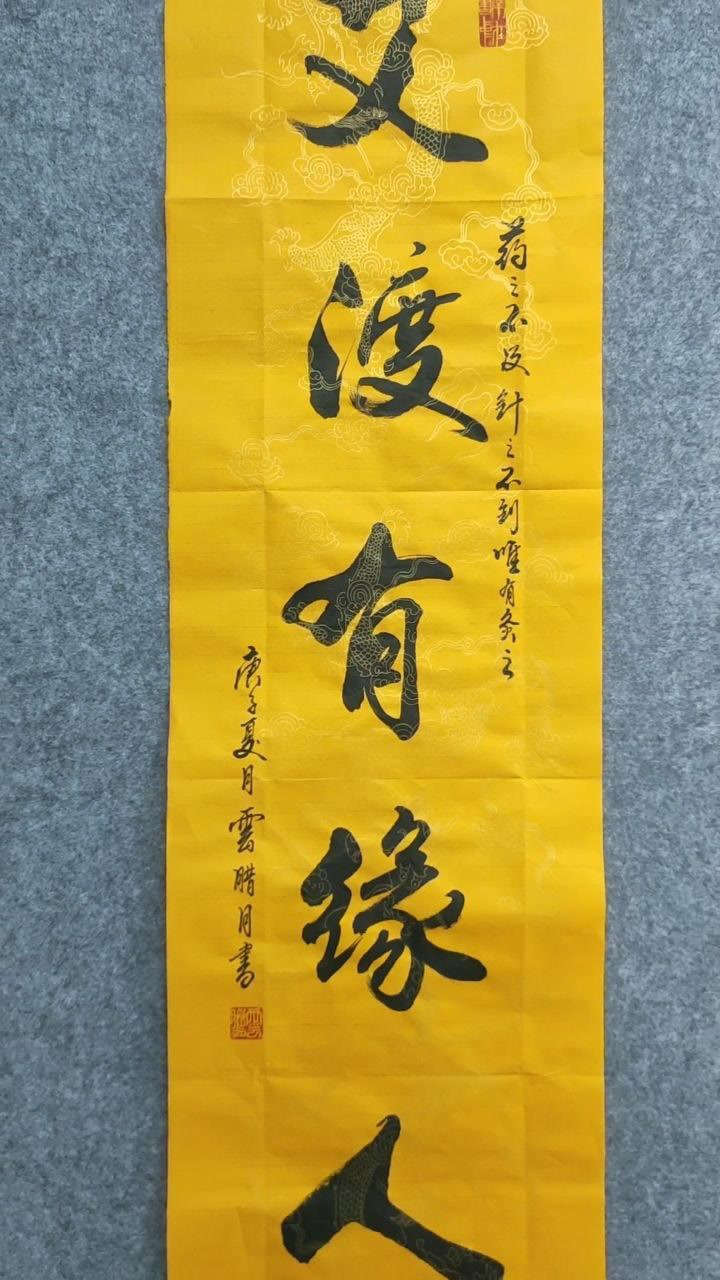 药之不及针之不到唯有灸之
艾渡有缘人
庚子夏月雲腊月書